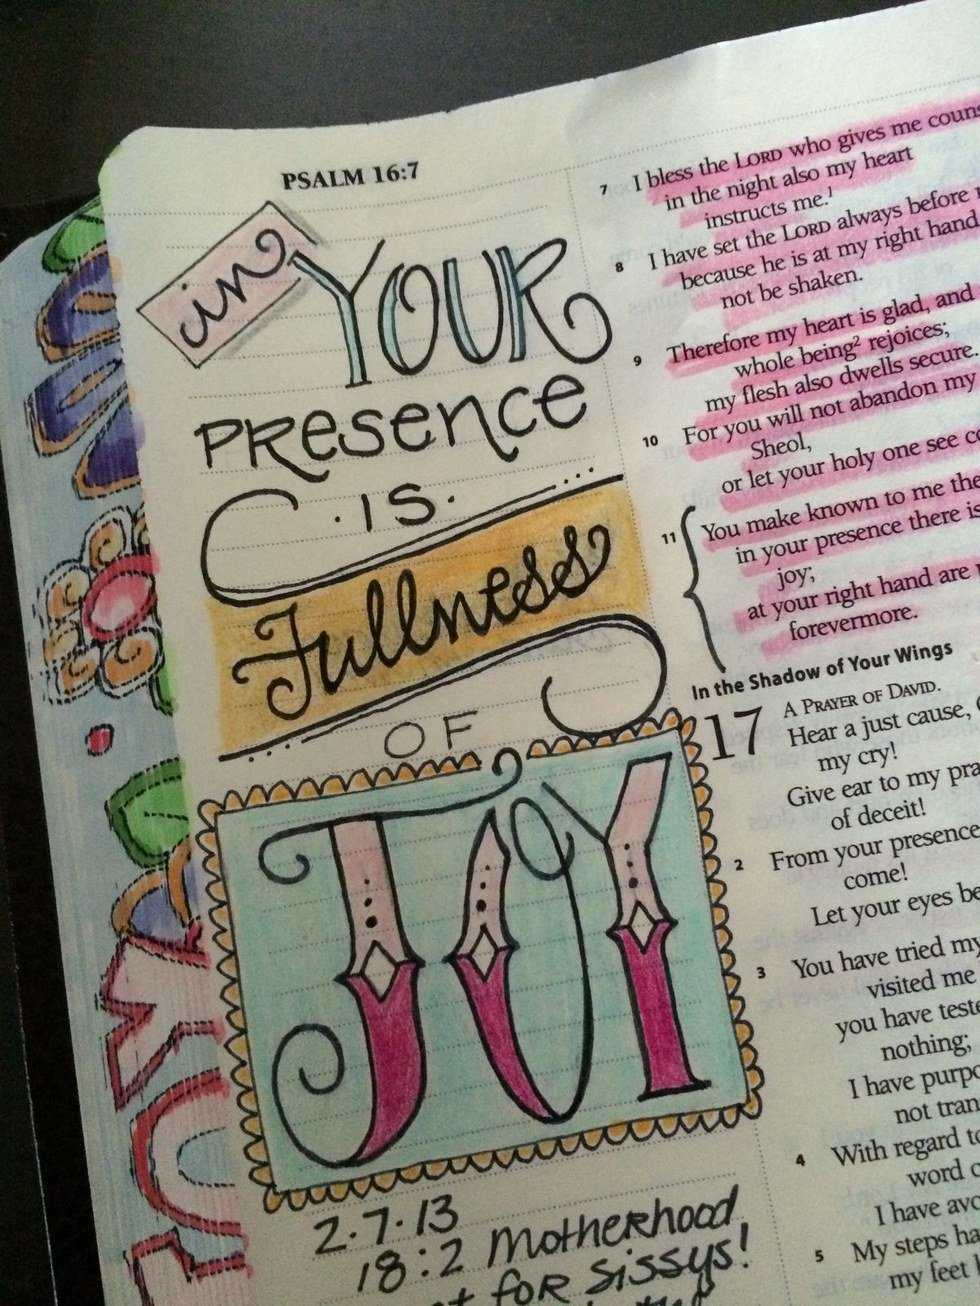 PSALM 16:7
in YOUR
PRESENCE
· IS ·
Fullness
OF
JOY
2·7·13
18:2 Motherhood
FOR Sissys!
7 I bless the LORD who gives me
in the night also my heart
instructs me.1
8 I have set the LORD always before
because he is at my right hand
not be shaken.
9 Therefore my heart is glad, and
whole being2 rejoices;
my flesh also dwells secure.
10 For you will not abandon my
Sheol,
or let your holy one see
11 You make known to me the
in your presence there is
joy;
at your right hand are
forevermore.
In the Shadow of Your Wings
A PRAYER OF DAVID.
17 Hear a just cause,
my cry!
Give ear to my
of deceit!
2 From your presence
come!
Let your eyes
3 You have tried my
visited me
you have
nothing;
I have
not
4 With regard
word
I have
5 My steps
my feet